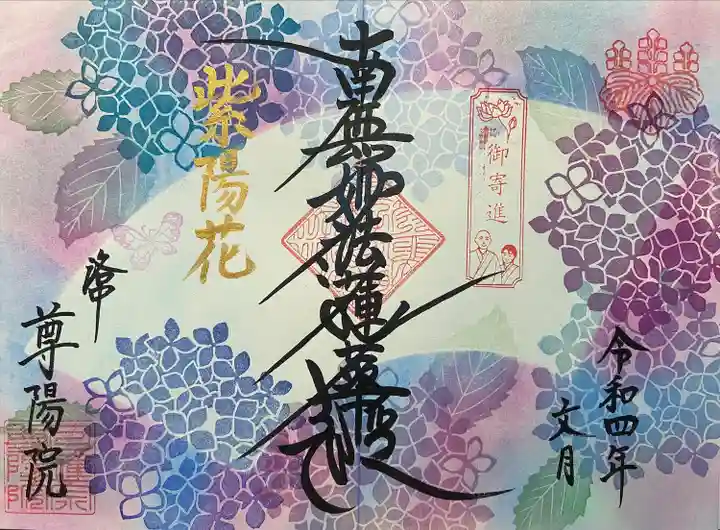 御寄進
令和四年
文月
南無妙法蓮華経
紫陽花
尊陽院